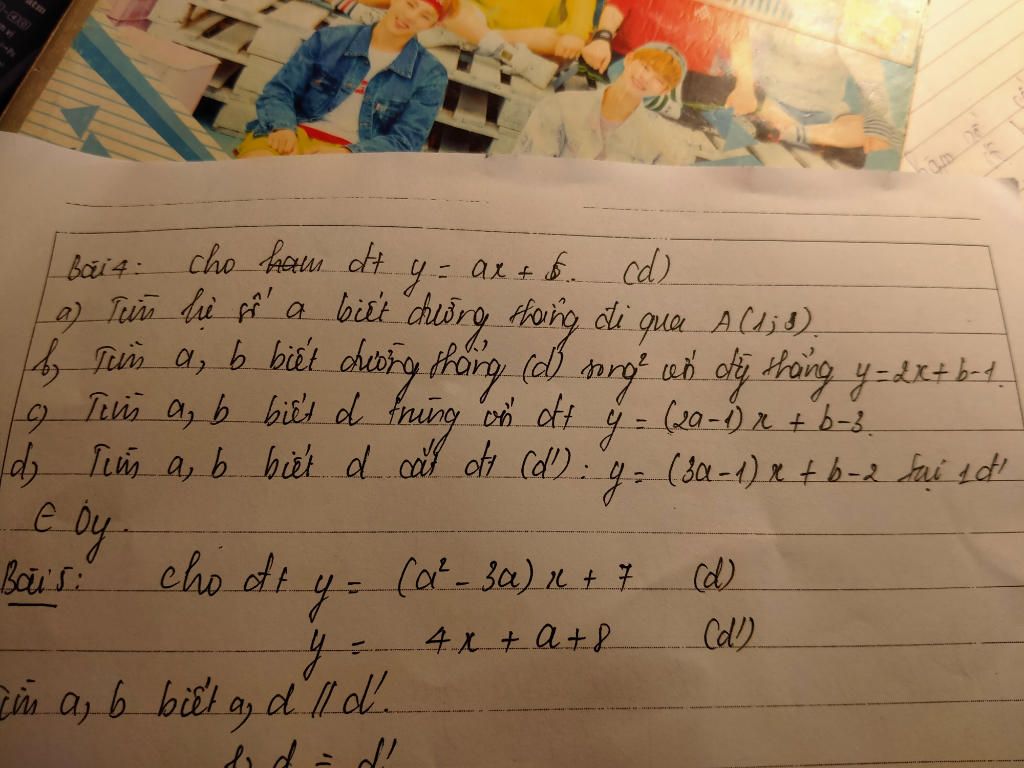 Bài 4: Cho ham dt y = ax + 5. (d)
a) Tìm hệ số a biết đường thẳng đi qua A(1; 8).
b, Tìm a, b biết đường thẳng (d) song² với đg thẳng y=2x+b-1.
c) Tìm a, b biết d trùng với dt y = (2a-1)x + b-3.
d, Tìm a, b biết d cắt dt (d'): y = (3a-1)x + b-2 tại 1đ'
∈ Oy.
Bài 5: Cho dt y = (a² - 3a)x + 7 (d)
y = 4x + a+8 (d')
Tìm a, b biết a, d // d'.
b, d ≡ d'